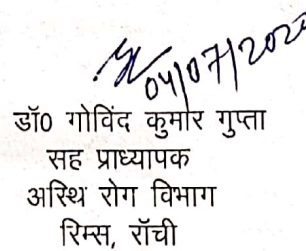 04/07/202
डॉ0 गोविंद कुमार गुप्ता
सह प्राध्यापक
अस्थि रोग विभाग
रिम्स, राँची